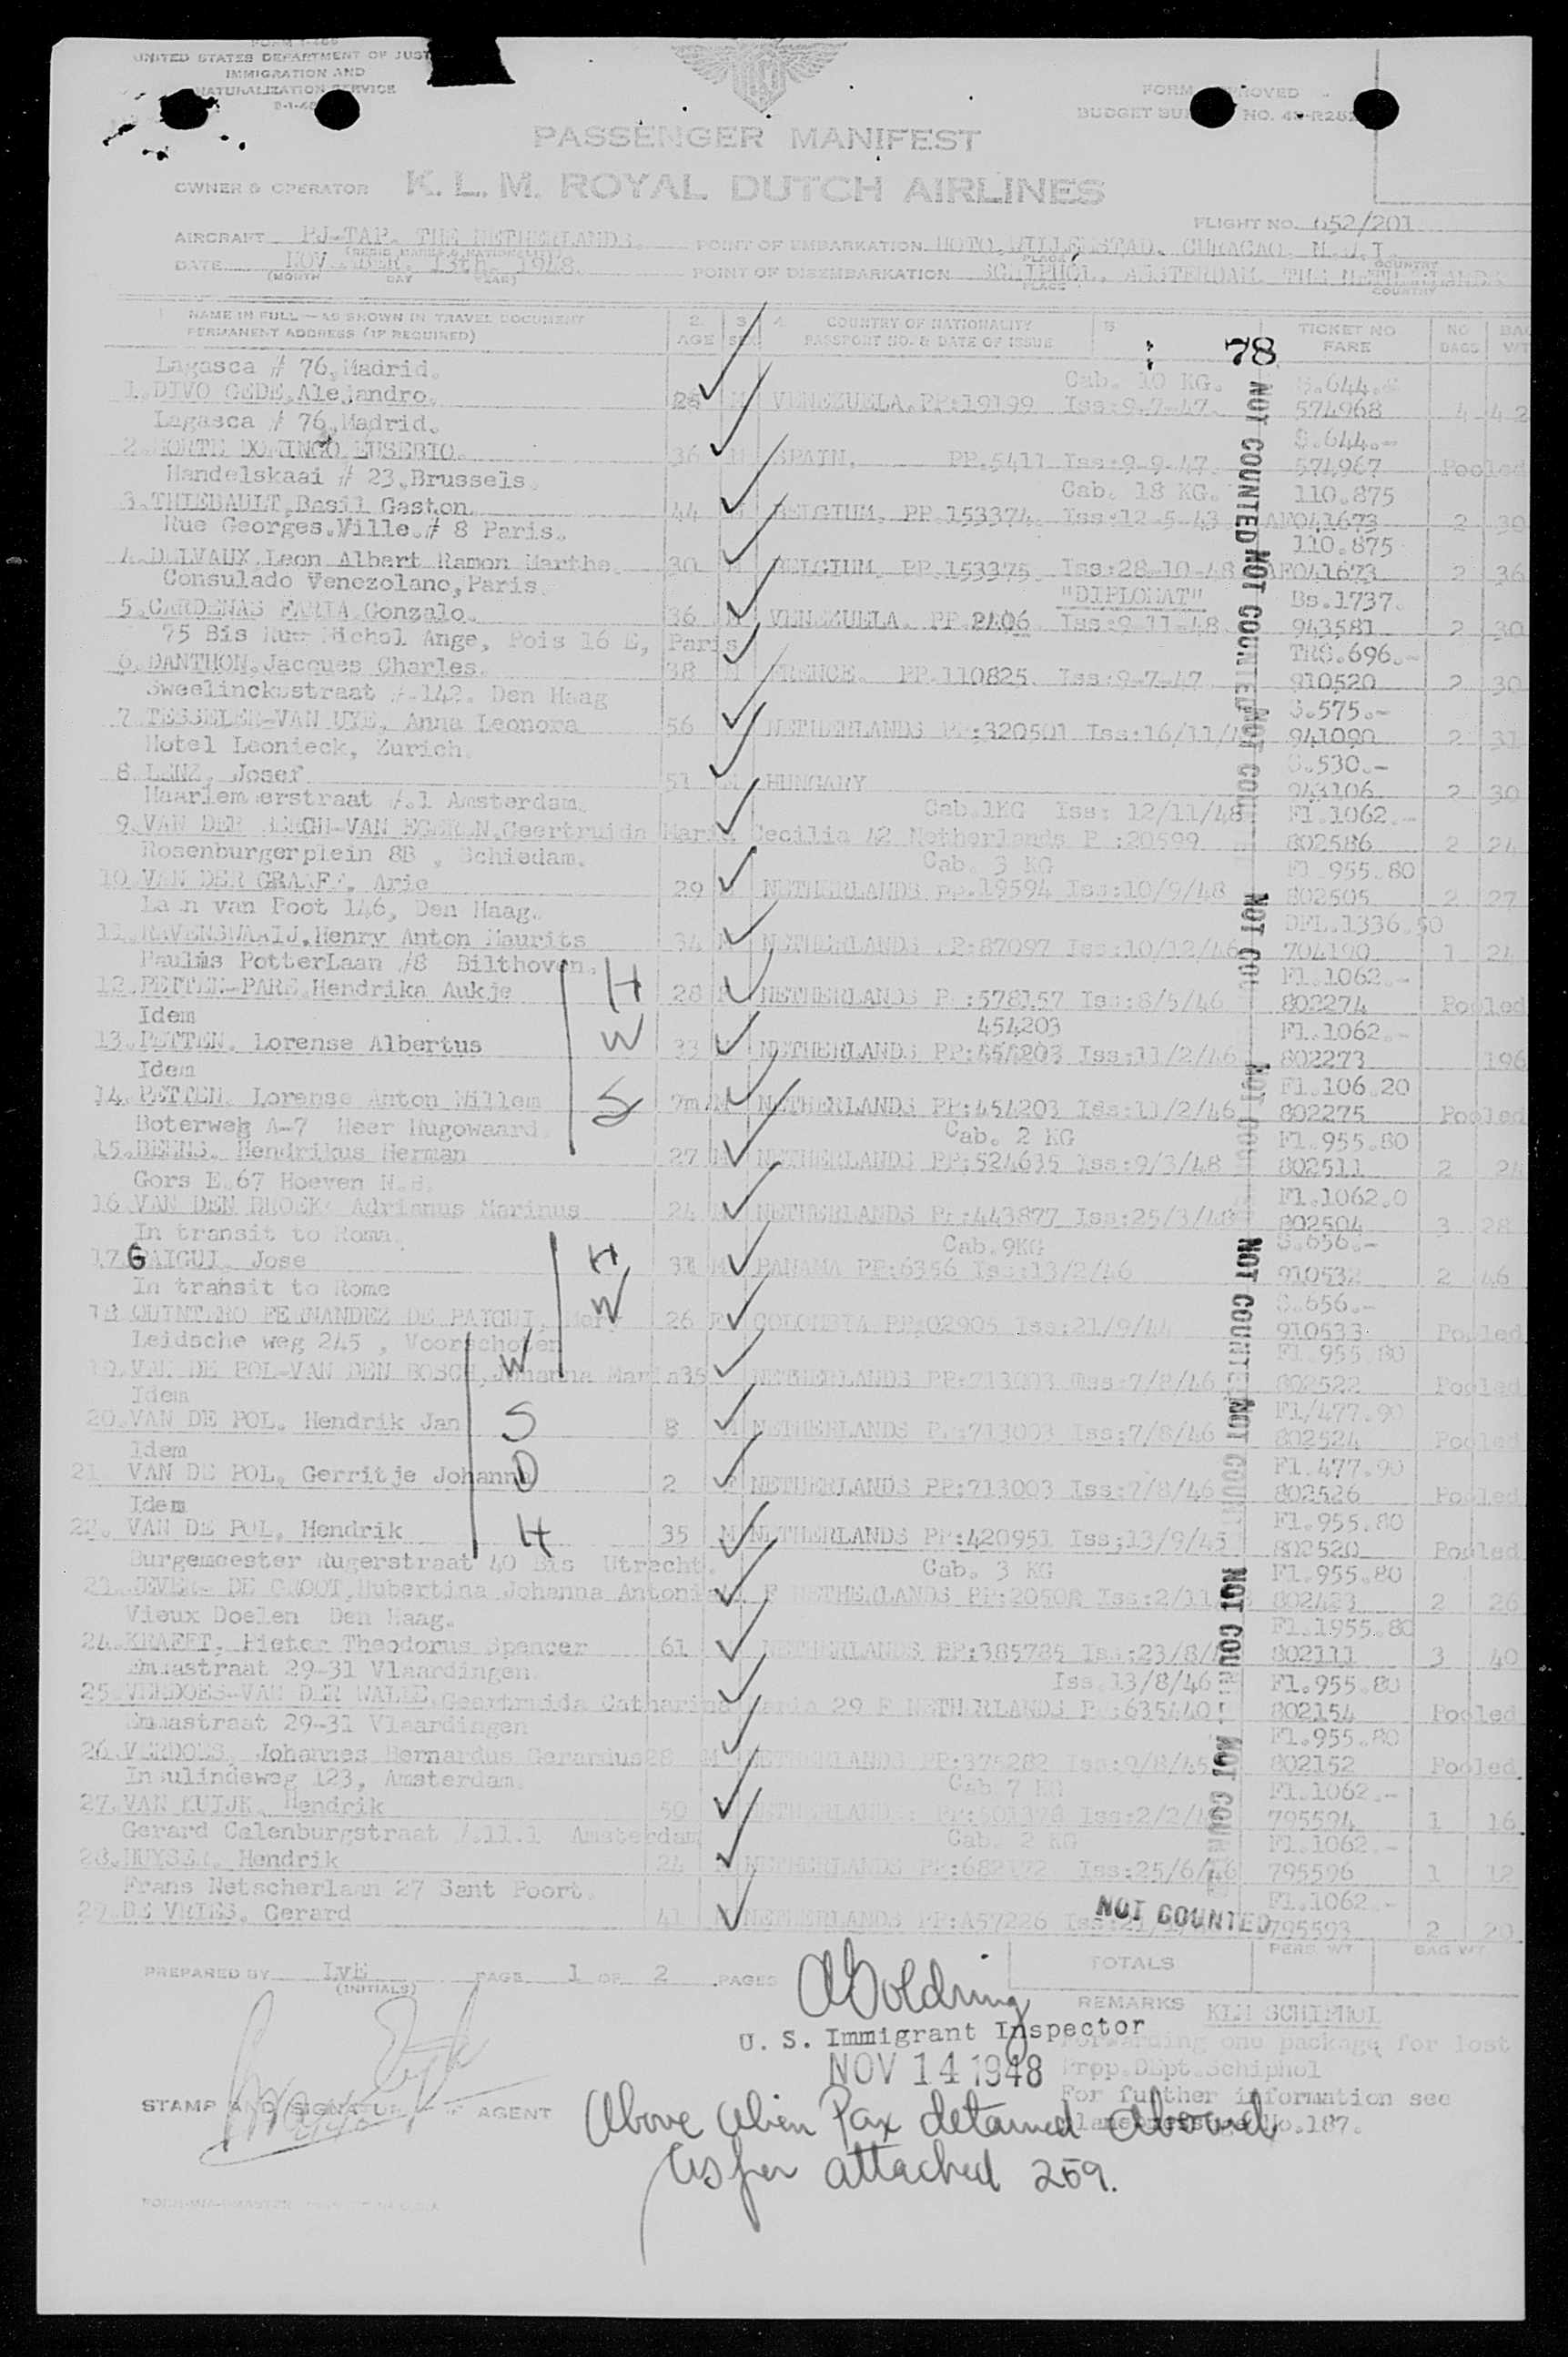 FORM I-466
UNITED STATES DEPARTMENT OF JUST
IMMIGRATION AND
NATURALIZATION SERVICE
FORM APPROVED
BUDGET BU NO. 43-R252
PASSENGER MANIFEST
OWNER & OPERATOR K. L. M. ROYAL DUTCH AIRLINES
FLIGHT NO. 652/201
AIRCRAFT PJ-TAP. THE NETHERLANDS. POINT OF EMBARKATION HOTO, WILLEMSTAD, CURACAO, N.W.I.
DATE NOVEMBER, 13th. 1948. POINT OF DISEMBARKATION SCHIPHOL, AMSTERDAM, THE NETHERLANDS
(MONTH DAY YEAR) PLACE COUNTRY
NAME IN FULL — AS SHOWN IN TRAVEL DOCUMENT 2 3 4 COUNTRY OF NATIONALITY 5 TICKET NO NO BAG
PERMANENT ADDRESS (IF REQUIRED) AGE SEX PASSPORT NO. & DATE OF ISSUE FARE BAGS WT
78
Lagasca # 76, Madrid. Cab. 10 KG. $.644.-
1. DIVO GEDE, Alejandro. 25 M VENEZUELA. PP:19199 Iss:9-7-47. 574968 4 42
Lagasca # 76, Madrid. $.644.-
2. DOMINGO EUSEBIO. 36 M SPAIN. PP.5411 Iss:9-9-47. 574967 Pooled
Handelskaai # 23, Brussels. Cab. 18 KG. 110.875
3. THIEBAULT, Basil Gaston. 44 M BELGIUM. PP.153374. Iss:12-5-43 AF041673 2 30
Rue Georges.Ville.# 8 Paris. 110.875
4. DELVAUX, Leon Albert Ramon Marthe. 30 M BELGIUM. PP.153375. Iss:28-10-48 AF041673 2 36
Consulado Venezolano, Paris. "DIPLOMAT" Bs.1737.
5. CARDENAS FARIA, Gonzalo. 36 M VENEZUELA. PP.2406 Iss:9-11-48. 943581 2 30
75 Bis Rue Michol Ange, Pois 16 E, Paris TRS.696.-
6. DANTHON, Jacques Charles. 38 M FRENCE. PP.110825. Iss:9-7-47 910520 2 30
Sweelinckstraat #.142. Den Haag $.575.-
7. TESSELER-VAN UYE, Anna Leonora 56 NETHERLANDS PP:320501 Iss:16/11/4 941090 2 31
Hotel Leonieck, Zurich. $.530.-
8. LENZ, Josef 51 M HUNGARY 943106 2 30
Haarlemmerstraat #.1 Amsterdam. Cab.1KG Iss: 12/11/48 Fl.1062.-
9. VAN DER BERGH-VAN EGEREN, Geertruida Maria Cecilia 42 Netherlands P :20599 802586 2 24
Rosenburgerplein 8B , Schiedam. Cab. 3 KG Fl.955.80
10. VAN DER GRAAFF, Arie 29 NETHERLANDS PP.19594 Iss:10/9/48 802505 2 27
Laan van Poot 146, Den Haag. DFL.1336.50
11. RAVENSWAAIJ, Henry Anton Maurits 34 M NETHERLANDS PP:87097 Iss:10/12/46 704190 1 24
Paulus PotterLaan #8 Bilthoven. H Fl.1062.-
12. PETTEN-PARE, Hendrika Aukje 28 F NETHERLANDS PP:578157 Iss:8/5/46 802274 Pooled
Idem W 454203 Fl.1062.-
13. PETTEN. Lorense Albertus 33 NETHERLANDS PP:454203 Iss:11/2/46 802273 196
Idem S Fl.106.20
14. PETTEN. Lorense Anton Willem 7m M NETHERLANDS PP:454203 Iss:11/2/46 802275 Pooled
Boterweg A-7 Heer Hugowaard. Cab. 2 KG Fl.955.80
15. Hendrikus Herman 27 M NETHERLANDS PP:524635 Iss:9/3/48 802511 2 24
Gors E.67 Hoeven N.B. Fl.1062.0
16. VAN DEN BROEK, Adrianus Marinus 24 NETHERLANDS PP:443877 Iss:25/3/48 802504 3 28
In transit to Roma. H Cab.9KG $.656.-
17. GAIGUI, Jose 31 M PANAMA PP:6356 Iss:13/2/46 910532 2 46
In transit to Rome W $.656.-
18. QUINTERO FERNANDEZ DE PAIGUI, Mary 26 F COLOMBIA PP:02905 Iss:21/9/44 910533 Pooled
Leidsche weg 245 , Voorschoten W Fl.955.80
19. VAN DE POL-VAN DEN BOSCH, Johanna Maria 35 NETHERLANDS PP:713003 Iss:7/8/46 802522 Pooled
Idem Fl/477.90
20. VAN DE POL. Hendrik Jan S 8 M NETHERLANDS PP:713003 Iss:7/8/46 802524 Pooled
Idem Fl.477.90
21. VAN DE POL, Gerritje Johanna D 2 F NETHERLANDS PP:713003 Iss:7/8/46 802526 Pooled
Idem Fl.955.80
22. VAN DE POL, Hendrik H 35 M NETHERLANDS PP:420951 Iss;13/9/45 802520 Pooled
Burgemeester Rugerstraat 40 Bis Utrecht. Cab. 3 KG Fl.955.80
23. DE GROOT, Hubertina Johanna Antonia F NETHERLANDS PP:20508 Iss:2/11 802423 2 26
Vieux Doelen Den Haag. Fl.1955.80
24. KRAFFT, Pieter Theodorus Spencer 61 NETHERLANDS PP:385785 Iss:23/8/4 802111 3 40
Emmastraat 29-31 Vlaardingen Iss.13/8/46 Fl.955.80
25. VERDOES-VAN DER WALLE, Geertruida Catharina Maria 29 F NETHERLANDS PP:635440 802154 Pooled
Emmastraat 29-31 Vlaardingen Fl.955.80
26. VERDOES, Johannes Bernardus Gerardus 28 M NETHERLANDS PP:375282 Iss:9/8/45 802152 Pooled
Insulindeweg 123, Amsterdam. Cab.7 KG Fl.1062.-
27. VAN KUIJK. Hendrik 50 NETHERLANDS Iss:2/2/4 795594 1 16
Gerard Calenburgstraat #.11.1 Amsterdam Cab. 2 KG Fl.1062.-
28. HUYSER. Hendrik 24 NETHERLANDS PP:682172 Iss:25/6/46 795596 1 12
Frans Netscherlaan 27 Sant Poort. Fl.1062.-
29. DE VRIES. Gerard 41 NETHERLANDS PP:A57226 795593 2 20
NOT COUNTED
PREPARED BY LvE PAGE 1 OF 2 PAGES TOTALS PERS. WT BAG WT
(INITIALS)
A Goldring
U. S. Immigrant Inspector
NOV 14 1948
REMARKS KLM SCHIPHOL
Forwarding one package for lost
Prop.DEpt.Schiphol
For further information see
No.187.
STAMP AND SIGNATURE OF AGENT
Above Alien Pax detained aboard
as per attached 259.